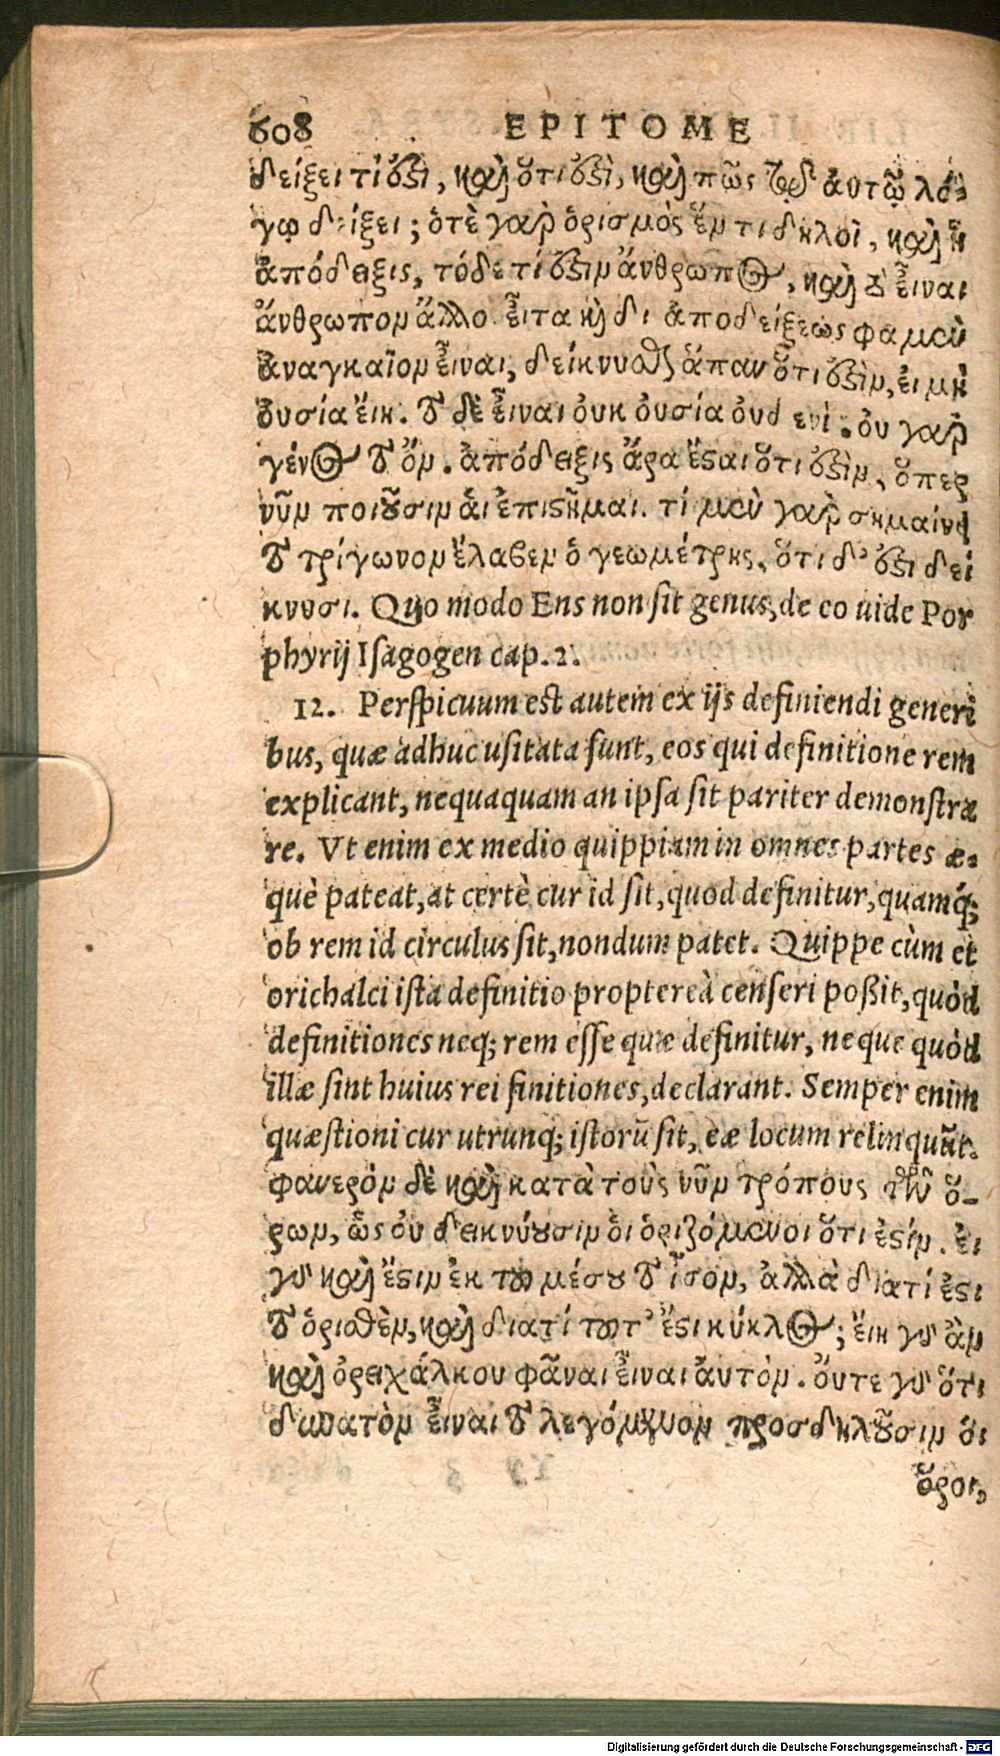 608 EPITOME
δείξει τί ὅξι, καὶ ὅτι ὅξι, καὶ πῶς τῷ ἀυτῷ λό-
γῳ δείξει; ὁτὲ γαρ ὁρισμὸς ἕν τι δηλοῖ, καὶ ἡ
ἀπόδειξις, τόδε τί ὅξιν ἄνθρωπος, καὶ τὸ εἶναι
ἄνθρωπον ἄλλο. εἶτα καὶ δι ἀποδείξεώς φαμεν
ἀναγκαῖον εἶναι, δείκνυσθαι ἅπαν ὅτι ὅξὶν, ἐι μὴ
ὀυσία ἔιη. τὸ δὲ εἶναι ὀυκ ὀυσία ὀυδ ενὶ. ὀυ γαρ
γένος τὸ ὄν. ἀπόδειξις ἄρα ἔςαι ὅτι ὅξὶν, ὅπερ
νῦν ποιοῦσιν ἁι ἐπιςῆμαι. τί μεν γαρ σημαίνει
τὸ τρίγωνον ἔλαβεν ὁ γεωμέτρης, ὅτι δ’ ὅξι δεί
κνυσι. Quo modo Ens non sit genus, de eo uide Por
phyrij Isagogen cap. 2.
12. Perspicuum est autem ex ijs definiendi generi
bus, quæ adhuc usitata sunt, eos qui definitione rem
explicant, nequaquam an ipsa sit pariter demonstra
re. Vt enim ex medio quippiam in omnes partes æ-
què pateat, at certè cur id sit, quod definitur, quamq́;
ob rem id circulus sit, nondum patet. Quippe cùm et
orichalci ista definitio propterea censeri poßit, quòd
definitiones neq; rem esse quæ definitur, neque quòd
illæ sint huius rei finitiones, declarant. Semper enim
quæstioni cur utrunq; istorũ sit, eæ locum relinquũt.
φανερὸν δὲ καὶ κατὰ τοὺς νῦν τρόπους τῶν ὅ-
ρων, ὡς ὀυ δεικνύουσιν ὁι ὁριζόμενοι ὅτι ἐςίν. ἐι
γὰρ καὶ ἔςιν ἐκ του μέσου τὸ ἶσον, ἀλλὰ διατί ἐςι
τὸ ὁρισθὲν, καὶ διατί τουτ’ ἔςι κύκλος; ἔιη γὰρ ἂν
καὶ ὀρειχάλκου φᾶναι εἶναι ἀυτὸν. ὄυτε γὰρ ὅτι
δυνατὸν εἶναι τὸ λεγόμενον προσδηλοῦσιν ὁι
ὅροι,
Digitalisierung gefördert durch die Deutsche Forschungsgemeinschaft - DFG